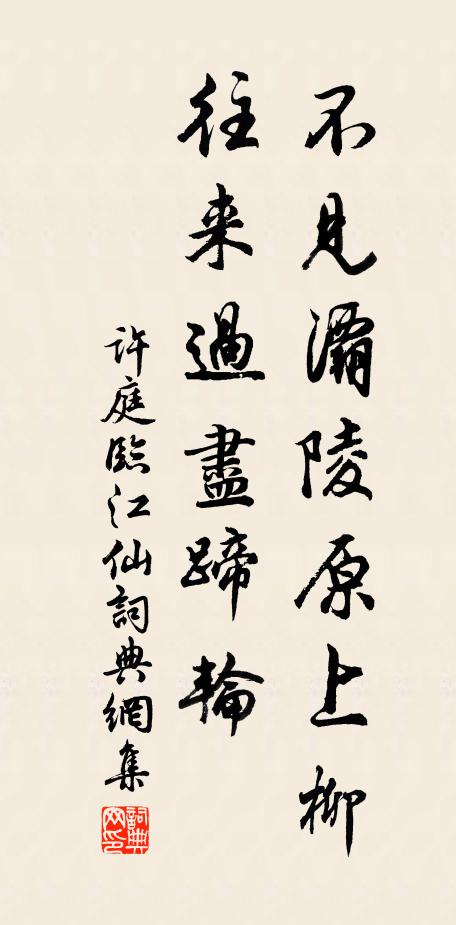 不見灞陵原上柳
往来過盡蹄輪
許庭臨江仙詞典網集
詞典网印